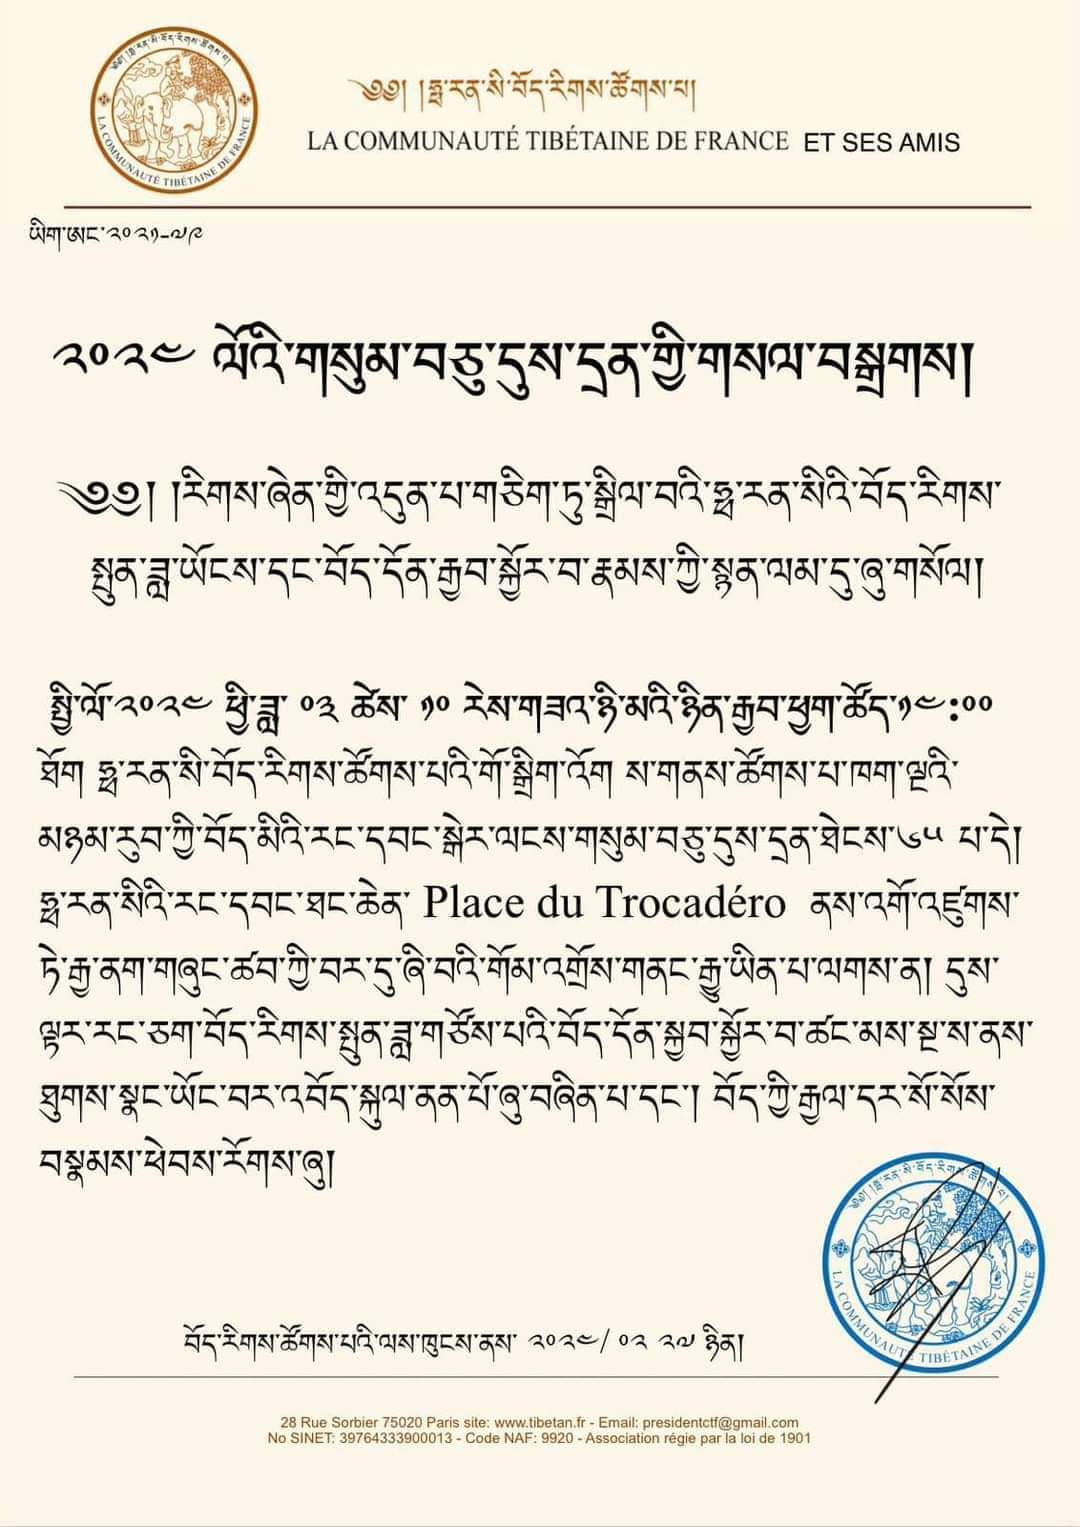 ༄༅། །ཧྥ་རན་སི་བོད་རིགས་ཚོགས་པ།
LA COMMUNAUTÉ TIBÉTAINE DE FRANCE
༄༅། །ཧྥ་རན་སི་བོད་རིགས་ཚོགས་པ།
LA COMMUNAUTÉ TIBÉTAINE DE FRANCE ET SES AMIS
ཡིག་ཨང་༢༠༢༡-༧༩
༢༠༢༤ ལོའི་གསུམ་བཅུ་དུས་དྲན་གྱི་གསལ་བསྒྲགས།
༄༅། །རིགས་ཞེན་གྱི་འདུན་པ་གཅིག་ཏུ་སྒྲིལ་བའི་ཧྥ་རན་སིའི་བོད་རིགས་
སྤུན་ཟླ་ཡོངས་དང་བོད་དོན་རྒྱབ་སྐྱོར་བ་རྣམས་ཀྱི་སྙན་ལམ་དུ་ཞུ་གསོལ།
སྤྱི་ལོ་༢༠༢༤ ཕྱི་ཟླ་ ༠༣ ཚེས་ ༡༠ རེས་གཟའ་ཉི་མའི་ཉིན་རྒྱབ་ཕྱག་ཚོད་༡༤:༠༠
ཐོག ཧྥ་རན་སི་བོད་རིགས་ཚོགས་པའི་གོ་སྒྲིག་འོག ས་གནས་ཚོགས་པ་ཁག་ལྔའི་
མཉམ་རུབ་ཀྱི་བོད་མིའི་རང་དབང་སྒེར་ལངས་གསུམ་བཅུ་དུས་དྲན་ཐེངས་༦༥ པ་དེ།
ཧྥ་རན་སིའི་རང་དབང་ཐང་ཆེན་ Place du Trocadéro ནས་འགོ་འཛུགས་
ཏེ་རྒྱ་ནག་གཞུང་ཚབ་ཀྱི་བར་དུ་ཞི་བའི་གོམ་འགྲོས་གནང་རྒྱུ་ཡིན་པ་ལགས་ན། དུས་
ལྟར་རང་ཅག་བོད་རིགས་སྤུན་ཟླ་གཙོས་པའི་བོད་དོན་སྐྱབ་སྐྱོར་བ་ཚང་མས་སྔ་ས་ནས་
ཐུགས་སྣང་ཡོང་བར་འབོད་སྐུལ་ནན་པོ་ཞུ་བཞིན་པ་དང་། བོད་ཀྱི་རྒྱལ་དར་སོ་སོས་
བསྣམས་ཕེབས་རོགས་ཞུ།
༄༅། །ཧྥ་རན་སི་བོད་རིགས་ཚོགས་པ།
LA COMMUNAUTÉ TIBÉTAINE DE FRANCE
བོད་རིགས་ཚོགས་པའི་ལས་ཁུངས་ནས་ ༢༠༢༤/ ༠༢ ༢༧ ཉིན།
28 Rue Sorbier 75020 Paris site: www.tibetan.fr - Email: presidentctf@gmail.com
No SINET: 39764333900013 - Code NAF: 9920 - Association régie par la loi de 1901